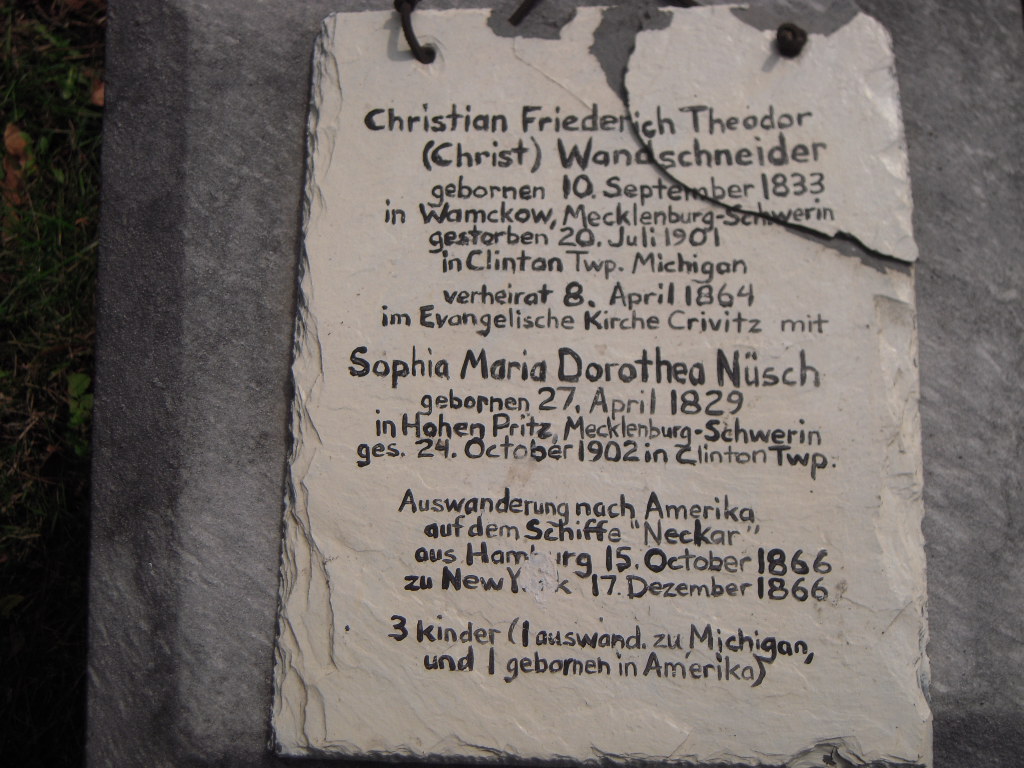 Christian Friederich Theodor
(Christ) Wandschneider
gebornen 10. September 1833
in Wamckow, Mecklenburg-Schwerin
gestorben 20. Juli 1901
in Clinton Twp. Michigan
verheirat 8. April 1864
im Evangelische Kirche Crivitz mit
Sophia Maria Dorothea Nüsch
gebornen 27. April 1829
in Hohen Pritz, Mecklenburg-Schwerin
ges. 24. October 1902 in Clinton Twp.
Auswanderung nach Amerika
auf dem Schiffe "Neckar"
aus Hamburg 15. October 1866
zu New York 17. Dezember 1866
3 kinder (1 auswand. zu Michigan,
und 1 gebornen in Amerika)